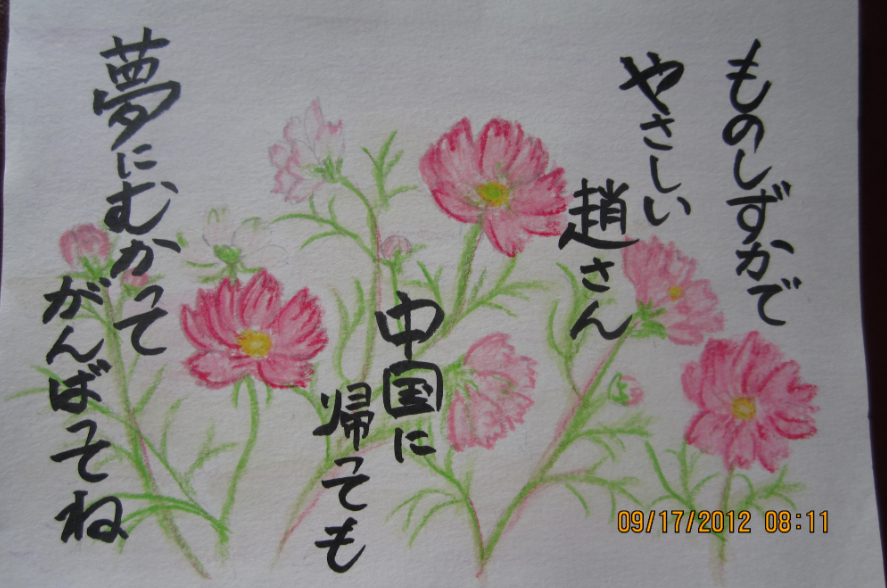 ものしずかで
やさしい
趙さん
中国に
帰っても
夢にむかって
がんばってね
09/17/2012 08:11